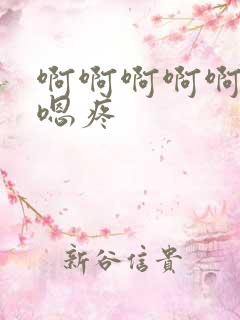 啊啊啊啊啊
嗯疼
新谷信貴